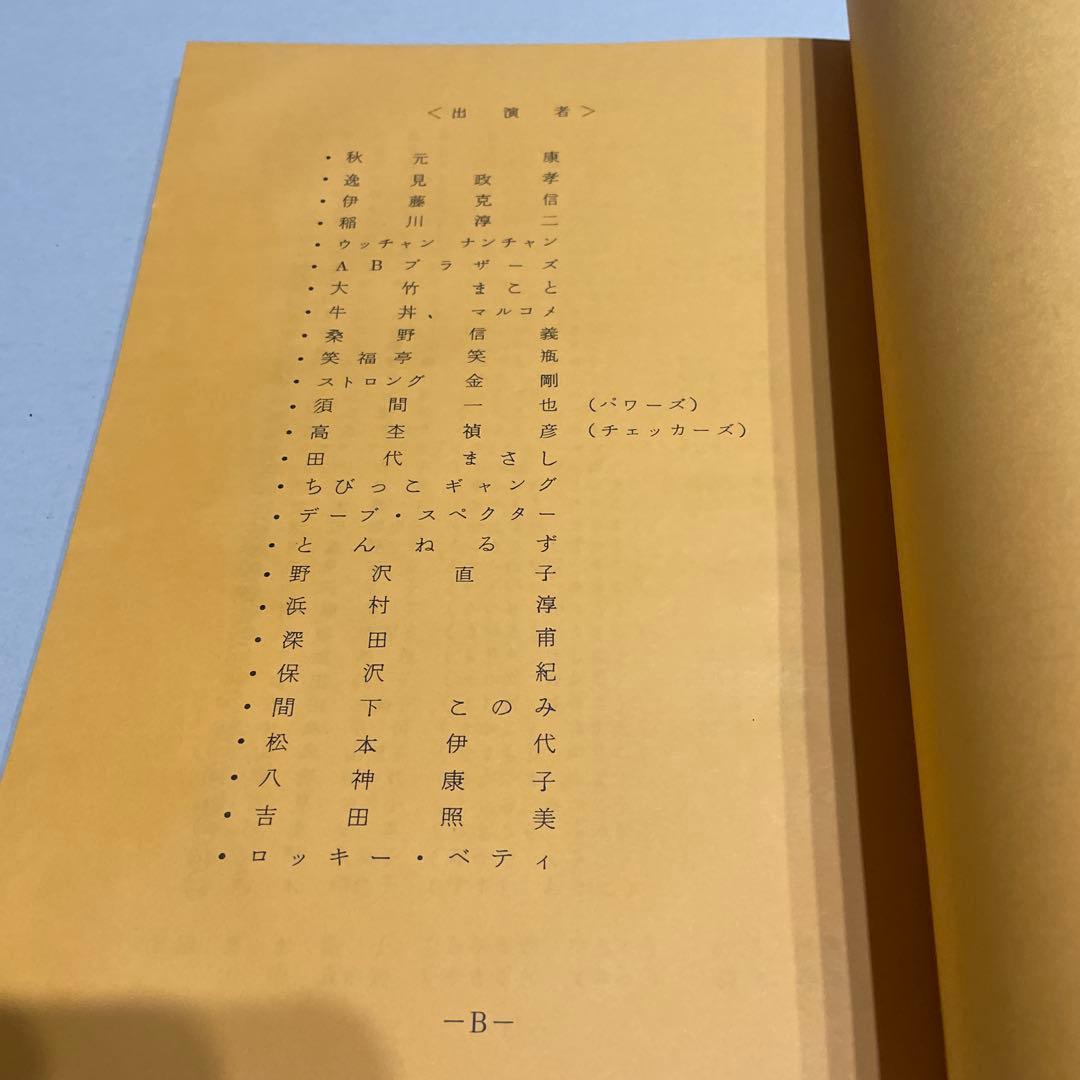 ＜出演者＞
・秋元康
・逸見政孝
・伊藤克信
・稲川淳二
・ウッチャン ナンチャン
・ABブラザーズ
・大竹まこと
・牛丼、マルコメ
・桑野信義
・笑福亭笑瓶
・ストロング金剛
・須間一也（パワーズ）
・高杢禎彦（チェッカーズ）
・田代まさし
・ちびっこギャング
・デーブ・スペクター
・とんねるず
・野沢直子
・浜村淳
・深田甫
・保沢紀
・間下このみ
・松本伊代
・八神康子
・吉田照美
・ロッキー・ベティ
－B－